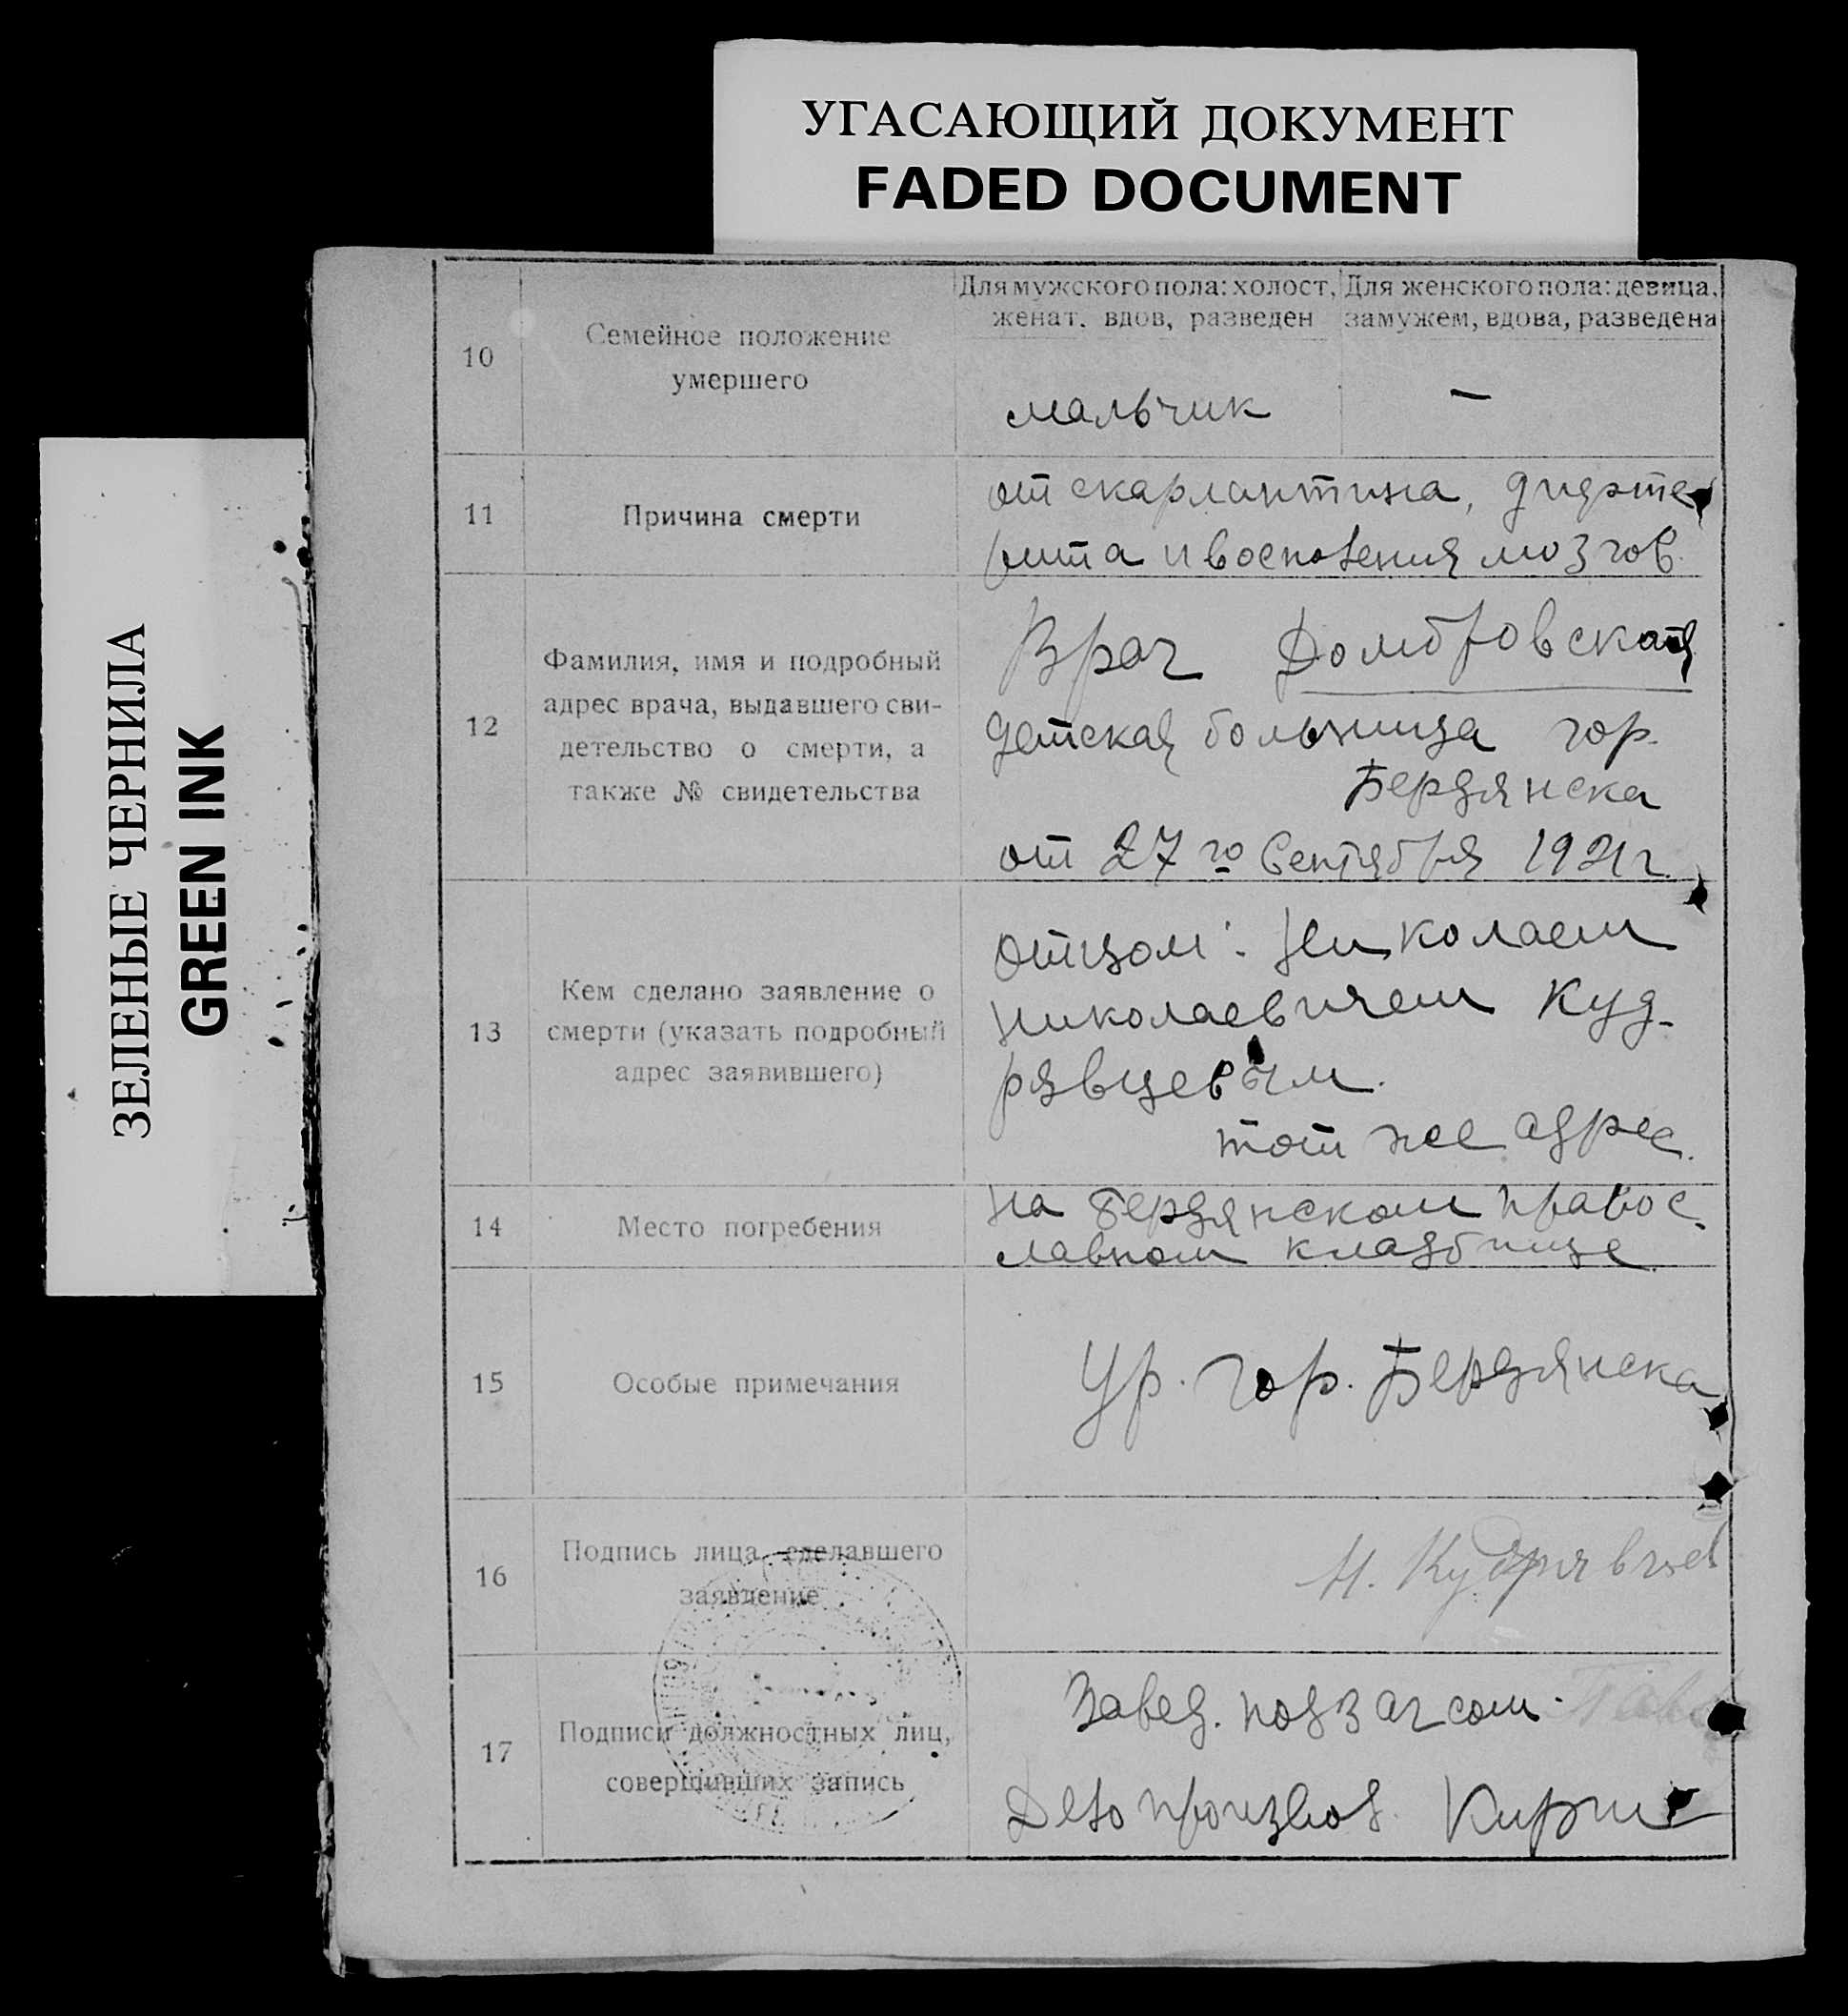 УГАСАЮЩИЙ ДОКУМЕНТ
FADED DOCUMENT
ЗЕЛЕНЫЕ ЧЕРНИЛА
GREEN INK
10
Семейное положение
умершего
Для мужского пола: холост,
женат, вдов, разведен
Для женского пола: девица,
замужем, вдова, разведена
мальчик
—
11
Причина смерти
от скарлантина, дифте
рита и воспаления мозгов.
12
Фамилия, имя и подробный
адрес врача, выдавшего сви-
детельство о смерти, а
также № свидетельства
Врач Домбровская
детская больница гор.
Бердянска
от 27го Сентября 1921г.
13
Кем сделано заявление о
смерти (указать подробный
адрес заявившего)
Отцом: Николаем
Николаевичем Куд-
рявцевым.
тот же адрес.
14
Место погребения
На Бердянском правос-
лавном кладбище.
15
Особые примечания
Ур. гор. Бердянска
16
Подпись лица, сделавшего
заявление
Н. Кудрявцев
17
Подписи должностных лиц,
совершивших запись
Завед. подзагсом.
Делопроизвод.